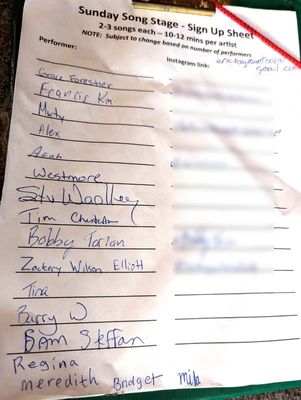 Sunday Song Stage - Sign Up Sheet
2-3 songs each – 10-12 mins per artist
NOTE: Subject to change based on number of performers
Performer: Instagram link:
gmail.com
Grace Forestier
Francis Kim
Marty
Alex
Westmore
Stu Woolley
Tim
Bobby Torian
Zackery Wilson Elliott
Tina
Barry W
Sam Steffan
Regina
meredith Badget Mila